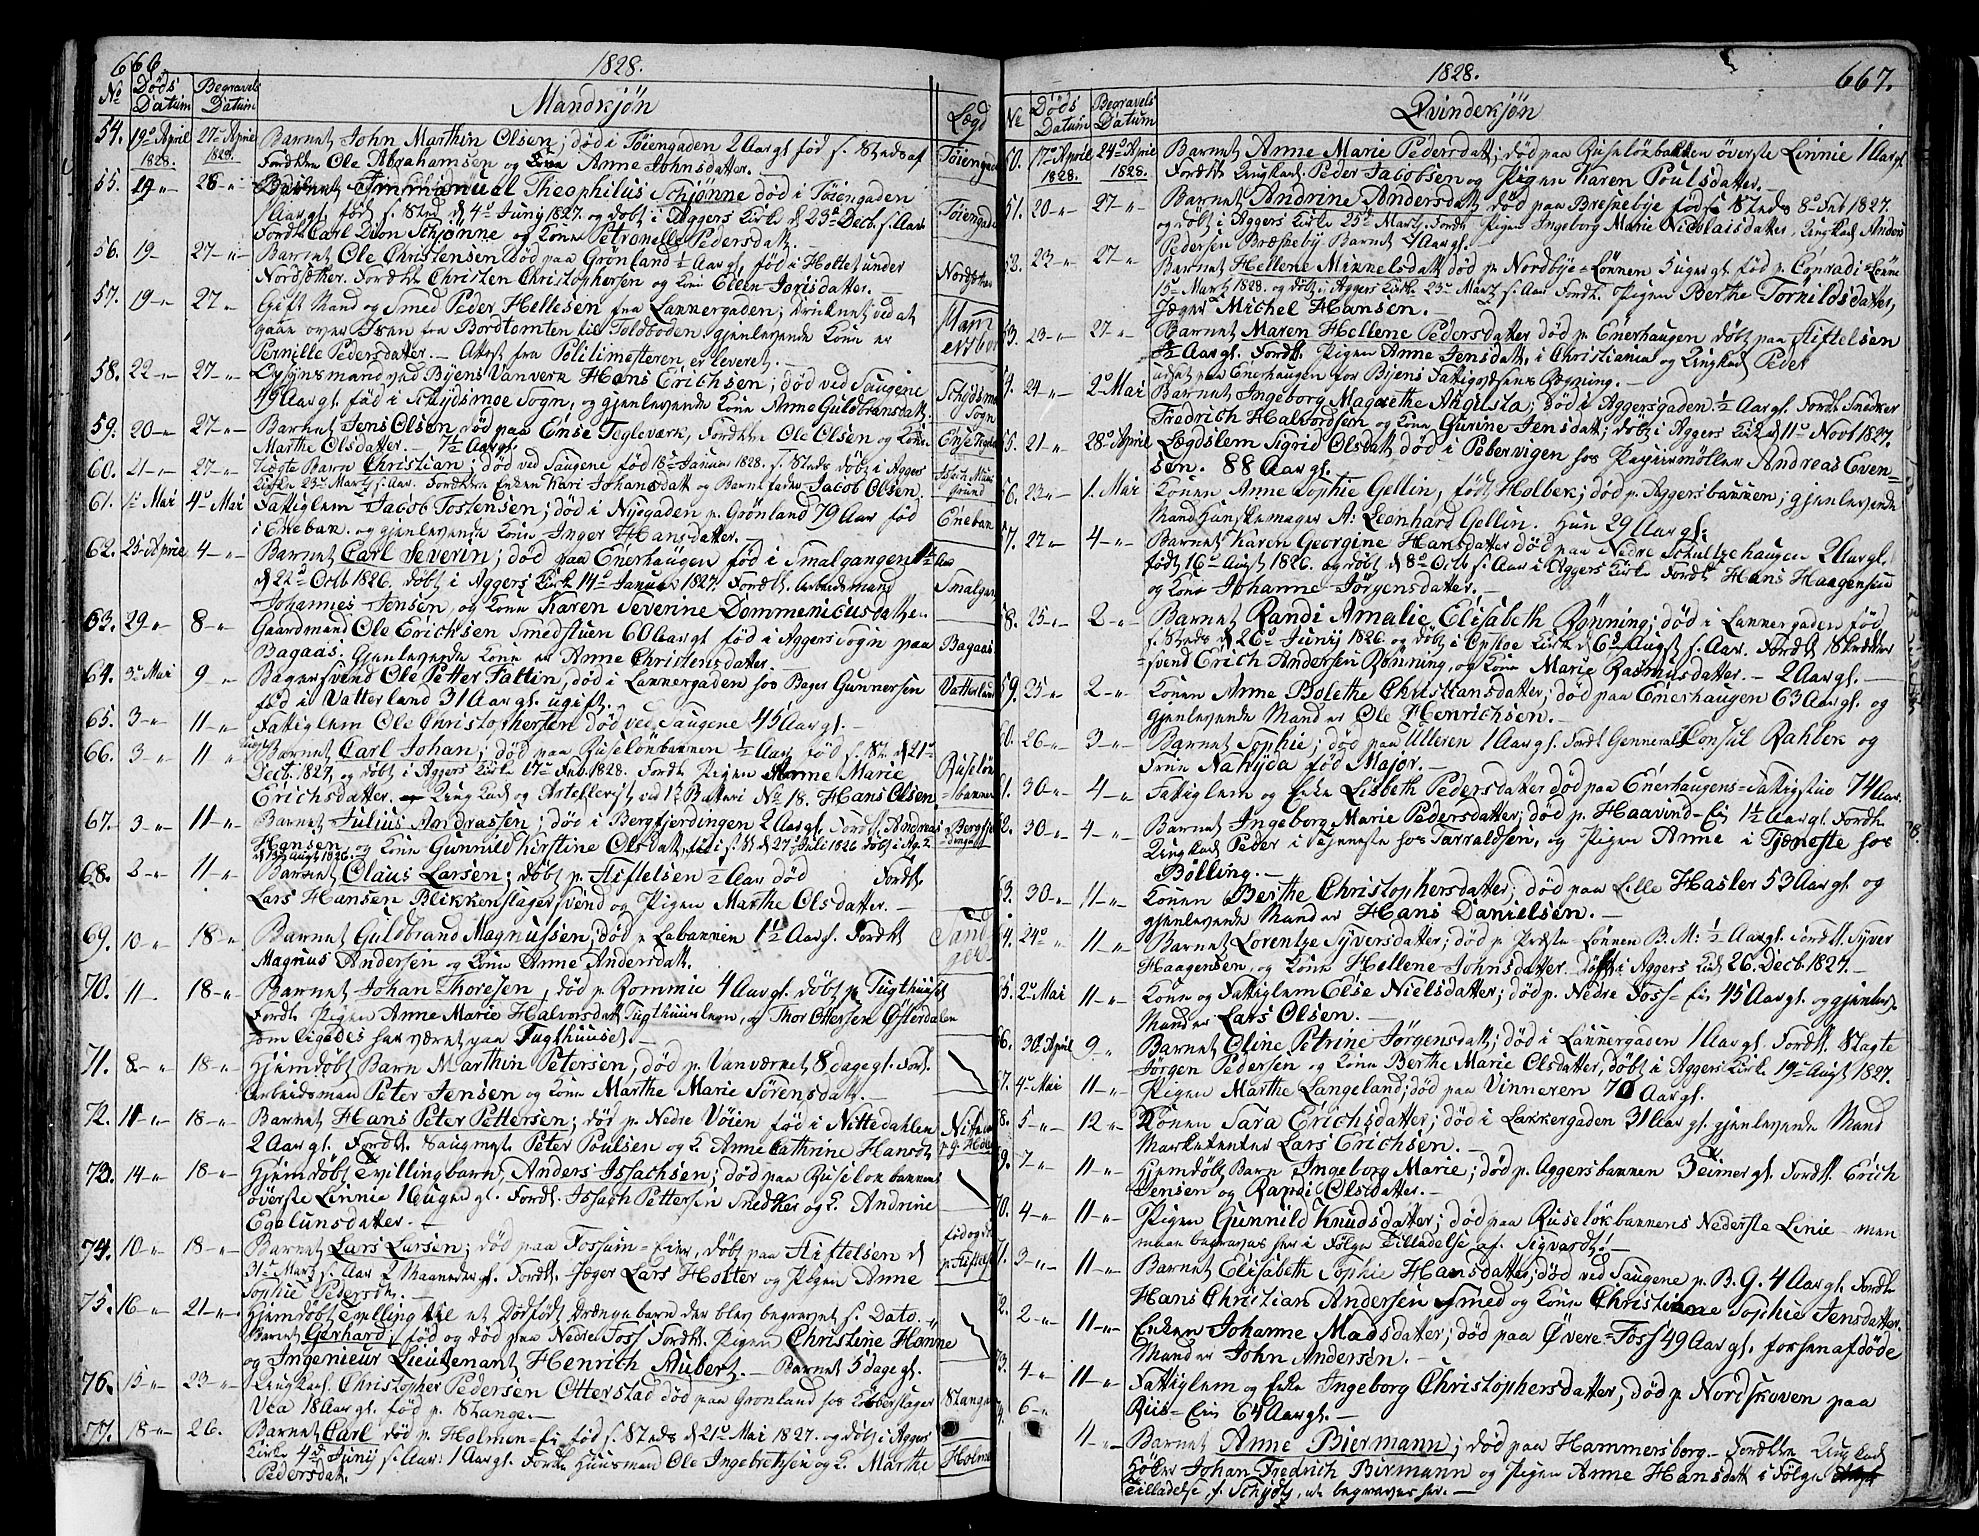 666.
1828.
No Døds Datum Begravels Datum Mandkjøn Lægd
54. 19de April 1828. 27de April 1828. Barnet John Marthin Olsen; død i Tøiengaden 2 Aar gl. født s. Steds af
Fordtre Ole Abrahamsen og Kone Anne Johnsdatter. Tøiengaden
55. 19 -"- 28 -"- Barnet Immanuel Theophilus Schjønne død i Tøiengaden
1 Aar gl. født s. Sted d 4de Junij 1827 og døbt i Aggers Kirke d 23de Decb. s. Aar
Fordtre Carl Dion Schjønne og Kone Petronelle Pedersdatt. Tøiengade
56. 19 - 27 -"- Barnet Ole Christensen død paa Grønland ½ Aar gl. fød i Holtet under
Nordsether. Fordtre Christen Christophersen og Kone Eleen Jorisdatter.
57. 19 -"- 27 -"- Gift Mand og Smed Peder Hellesen fra Lannergaden; druknet ved at
gaae over Isen fra Bordtomten til Toldboden gjenlevende Kone er
Pernille Pedersdatter. - Attest fra Politimesteren er leveret.
58. 22 -"- 27 -"- Opsynsmand ved Byens Vanverk Hans Erichsen; død ved Saugene
49 Aar gl. fød i Schydsmoe Sogn, og gjenlevende Kone Anne Guldbransdatt. Schydsmoe Sogn
59. 20 -"- 27 -"- Barnet Jens Olsen død paa Ense Tegleværk, Fordtre Ole Olsen og Kone
Marthe Olsdatter. - 7½ Aar gl.
60. 21 -"- 27 -"- Uægte Barn Christian; død ved Saugene fød 18de Januar 1828. s. Steds døbt i Aggers
Kirke 23de Martz s. Aar. Fordtre Enken Kari Johansdatt og Barnefader Jacob Olsen.
61. 1de Mai 4de Mai Fattiglem Jacob Tostensen; død i Nyegaden p. Grønland 79 Aar fød
i Eneban. og gjenlevende Kone Inger Hansdatter. Eneban
62. 23de Aprie 4 -"- Barnet Carl Severin; død paa Enerhaugen fød i Smalgangen 1½ Aar
d 22de Octb 1826. døbt i Aggers Kirk 14de Januar 1827. Fordtre Arbeidsmand
Johannes Jensen, og Kone Karen Severine Dommenicusdatter. Smalgan
63. 29 -"- 8 -"- Gaardmand Ole Erichsen Smedstuen 60 Aar gl. fød i Aggers Sogn paa
Bagaas. Gjenlevende Kone er Anne Christensdatter. Bagaas
64. 3de Mai 9 -"- Bagersvend Ole Petter Fattin, død i Lannergaden hos Bager Gunnersen
fød i Vatterland 31 Aar gl. ugift. Vatterland
65. 3 -"- 11 -"- Fattiglem Ole Christophersen død ved Saugene 45 Aar gl. -
66. 3 -"- 11 -"- Uægte Barnet Carl Johan; død paa Ruseløkbannen ½ Aar, fød s. St. d 21de
Decb. 1827 og døbt i Aggers Kirke 17de Feb. 1828. Fordtre Pigen Anne Marie
Erichsdatter. og Ungkarl og Artellerist ved 1ste Batteri No 18. Hans Olsen. Ruseløkbannen
67. 3 -"- 11 -"- Barnet Julius Andreassen; død i Bergfjerdingen 2 Aar gl. Fordtre Andreas
Hansen, og Kone Gunnild Kirstine Olsdatt, fød i s. St. d 27de Juli 1826 døbt i Ag. K.
d 13de Augt 1826.
68. 2 -"- 11 -"- Barnet Claus Larsen; døbt p. Stiftelsen - Aar død Fordtre
Lars Hansen Blikkenslagersvend og Pigen Marthe Olsdatter. -
69. 10 -"- 18 -"- Barnet Guldbrand Magnussen; død p. Labannen 1½ Aar gl. Fordtre
Magnus Andersen og Kone Anne Andersdatt.
70. 11 - 18 -"- Barnet Johan Thoresen, død p. Rommie 4 Aar gl. døbt p. Tugthuuset
Fordtre Pigen Anne Marie Halvorsdatt Tugthuuslem, og Thor Ottersen Østerdalen
som ligedes har været paa Tugthuuset. -
71. 8 -"- 18 -"- Hjemdøbt Barn Marthin Petersen, død p. Vanværnet 8 dage gl. Fordt.
Arbeidsman Peter Jensen og Kone Marthe Marie Sørensdatt.
72. 11 -"- 18 -"- Barnet Hans Peter Pettersen; død p. Nedre Vøien fød i Nittedahlen
2 Aar gl. Fordtre Saugmest. Peter Poulsen og K. Anne Cathrine Hansdt.
73. 14 -"- 18 -"- Hjemdøbt Tvillingbarn, Anders Issachsen; død paa Ruseløkbannens
øverste Linnie 16 uger gl. Fordt. Issach Pettersen Snedker og K. Andrine
Egelunsdatter. -
74. 10 -"- 18 -"- Barnet Lars Larsen; død paa Fossum-Eier, døbt paa Stiftelsen d
31de Martz s. Aar 2 Maaneder gl. Fordt. Jæger Lars Holter og Pigen Anne
Sophie Pedersdtr. - fød og dt. p. Stiftelse
75. 16 -"- 21 -"- Hjemdøbt Tvilling til et Dødfødt Drengebarn der blev begravet s. Dato.
Barnet Gerhard; fød og død paa Nedre Foss Fordtre Pigen Christine Hanne
og Ingenieur Lieutenant Henrich Aubert. - Barnet 5 dage gl.
76. 15 -"- 23 -"- Ungkarl Christopher Pedersen Otterstad død paa Grønland hos Koberslager
Vea 18 Aar gl. fød p. Stange. - Stange
77. 18 -"- 26. Barnet Carl død p. Holmen-Ei fød s. Steds d 21de Mai 1827. og døbt i Aggers
Kirke 4de Junij s. Aar: 1 Aar gl. Fordtre Huusmand Ole Ingebretsen og K. Marthe
Pedersdatt. Holme
1828. 667.
Ne Døds Datum Begravels Datum Qvindekjøn
50. 17de Aprie 1828. 24de Aprie 1828. Barnet Anne Marie Pedersdatt; død paa Ruseløkbakken øverste Linnie 1 Aar gl.
Fordtre Ungkarl Peder Jacobsen og Pigen Karen Poulsdatter. -
51. 20 -"- 27 -"- Barnet Andrine Andersdatt, død paa Breskebye fød s. Steds 8de Feb 1827.
og døbt i Aggers Kirke 25de Martz. Fordt. Pigen Ingeborg Marie Nicolaisdatter, Ungkarl Anders
Pedersen Bræskeby Barnet 1 Aar gl.
52. 23 -"- 27 -"- Barnet Hellene Mikkelsdatt død p. Nordbye-Lønnen 5 uger gl. fød p. Conradi-Lønne
15de Martz 1828. og døbt i Aggers Kirke 23de Martz s. Aar Fordt. Pigen Berthe Torkildsdatter,
Jæger Michel Hansen. -
53. 23 -"- 27 -"- Barnet Maren Hellene Pedersdatter død p. Enerhaugen døbt paa Stiftelsen
½ Aar gl. Fordt. Pigen Anne Jensdatt, i Christiania og Ungkarl Peder
udsat paa Enerhaugen for Byens Fattigvæsens Regning. -
54. 24 -"- 2de Mai Barnet Ingeborg Magrethe Augusta; død i Aggersgaden. ½ Aar gl. Fordt Snedker
Fredrich Halvordsen og Kone Gurine Jensdatt; døbt i Aggers Kirk d 11de Novb 1827.
55. 21 -"- 28de Aprie Lægdslem Sigrid Olsdatt død i Pebervigen hos Papiirmøller Andreas Even-
sen. 88 Aar gl.
56. 23 -"- 1. Mai Konen Anne Sophie Gellin, født Holbek; død p. Aggersbannen; gjenlevende
Mand Hanskemager A: Leonhard Gellin. Hun 29 Aar gl:
57. 22 -"- 4 -"- Barnet Karen Georgine Hansdatter død paa Nedre Schultzehaugen 2 Aar gl.
født 16de Augt 1826. og døbt d 8de Octb s. Aar i Aggers Kirke Fordt Hans Haagensen
og Kone Johanne Jørgensdatter. -
58. 25 -"- 2 -"- Barnet Randi Amalie Elisabeth Rønning; død i Lannergaden fød
s. Steds d 26de Junij 1826. og døbt i Opsloe Kirk d 6de Augt s. Aar. Fordt Skrædder
svend Erich Andersen Rønning, og Kone Marie Rasmusdatter. - 2 Aar gl. -
59. 25 -"- 2 -"- Konen Anne Bolethe Christiansdatter; død paa Enerhaugen 63 Aar gl. og
gjenlevende Mand er Ole Henrichsen. -
60. 26 -"- 3 -"- Barnet Sophie; død paa Ulleren 1 Aar gl. Fordt General Konsul Rahbek og
Frue Nahyda fød Major. -
61. 30 -"- 4 -"- Fattiglem og Enke Lisbeth Pedersdatter død paa Enerhaugens-Fattigstue 74 Aar.
62. 30 -"- 4 -"- Barnet Ingeborg Marie Pedersdatter; død p. Haavind-Ei 1½ Aar gl. Fordtre
Ungkarl Peder i Tjeneste hos Tarraldsen, og Pigen Anne i Tjæneste hos
Bølling. -
63. 30 -"- 11 -"- Konen Berthe Christophersdatter; død paa Lille Hasler 53 Aar gl. og
gjenlevende Mand er Hans Danielsen. -
64. 24de -"- 11 -"- Barnet Lorentze Syversdatter; død p. Præste-Lønnen B. M: ½ Aar gl. Fordt. Syver
Haagensen, og Kone Hellene Johnsdatter. Døbt i Aggers Kirk 26. Decb. 1827. -
65. 2de Mai 11 -"- Kone og Fattiglem Else Nielsdatter; død p. Nedre Foss-Eie 45 Aar gl. og gjenlev.
Mand er Lars Olsen. -
66. 30te April 9 -"- Barnet Oline Petrine Jørgensdatt; død i Lannergaden 1 Aar gl. Fordt. Slagte
Jørgen Pedersen og Kone Berthe Marie Olsdatter, døbt i Aggers Kirk 19de Augt 1827.
67. 4de Mai 11 -"- Pigen Marthe Langeland; død paa Vinneren 70 Aar gl.
68. 5 -"- 12 -"- Konen Sara Erichsdatter; død i Lakkergaden 31 Aar gl. gjenlevende Mand
Marketenter Lars Erichsen. -
69. 7 -"- 11 -"- Hjemdøbt Barn Ingeborg Marie; død p. Aggersbannen 3 Timer gl. Fordtt. Erich
Jensen og Randi Olsdatter. -
70. 4 -"- 11 -"- Pigen Gunnild Knudsdatter; død paa Ruseløkbannens Nederste Linie - men
maae begraves her i Følge Tilladelse af Sigvardt! -
71. 3 -"- 11 -"- Barnet Elisabeth Sophie Hansdatter; død ved Saugene p. B. G. 4 Aar gl. Fordtre
Hans Christian Andersen Smed og Kone Christiane Sophie Jensdatter.
72. 2 -"- 11 -"- Enken Johanne Madsdatter; død paa Øvere-Foss 49 Aar gl. forhen afdøde
Mand er John Andersen. -
73. 4 -"- 11 -"- Fattiglem og Enke Ingeborg Christophersdatter; død p. Nordskoven paa
Riis-Eie 64 Aar gl. -
74. 6 -"- 4 -"- Barnet Anne Biermann; død paa Hammersborg - Fordtre Ungkarl
Johan Fredrich Birmann og Pigen Anne Hansdatt i Følge
Tilladelse, f. Schydtz, at begraves her. -